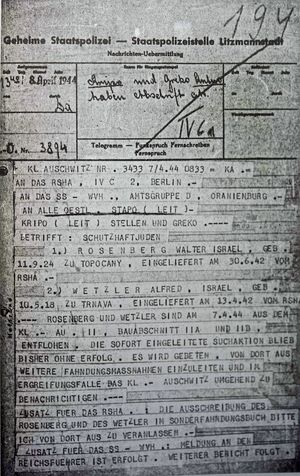 194
Geheime Staatspolizei — Staatspolizeistelle Litzmannstadt
Nachrichten-Uebermittlung
8. April 1944
und Greko
haben Abschrift
IV6a
D. Nr. 3894
Telegramm — Funkspruch Fernschreiben
Fernspruch
+ KL AUSCHWITZ NR. 3433 7/4.44 0833 = KA. =
AN DAS RSHA, IV C 2, BERLIN. =
AN DAS SS - WVH., AMTSGRUPPE D, ORANIENBURG
AN ALLE OESTL. STAPO (LEIT)-
KRIPO (LEIT) STELLEN UND GREKO.=
BETRIFFT: SCHUTZHAFTJUDEN
1.) ROSENBERG WALTER ISRAEL, GEB.
11.9.24 ZU TOPOCANY, EINGELIEFERT AM 30.6.42 VOM
RSHA.
2.) WETZLER ALFRED, ISRAEL, GEB.
10.5.18 ZU TRNAVA, EINGELIEFERT AM 13.4.42 VOM
ROSENBERG UND WETZLER SIND AM 7.4.44 AUS DEM
KL.- AU., II, BAUABSCHNITT IIA UND IIB
ENTFLOHEN. DIE SOFORT EINGELEITETE SUCHAKTION BLIEB
BISHER OHNE ERFOLG. ES WIRD GEBETEN, VON DORT AUS
WEITERE FAHNDUNGSMASSNAHMEN EINZULEITEN UND IM
ERGREIFUNGSFALLE DAS KL.- AUSCHWITZ UMGEHEND ZU
BENACHRICHTIGEN.
ZUSATZ FUER DAS RSHA.: DIE AUSSCHREIBUNG DES
ROSENBERG UND DES WETZLER IM SONDERFAHNDUNGSBUCH BITTE
ICH VON DORT AUS ZU VERANLASSEN.
ZUSATZ FUER DAS SS- WVH.: MELDUNG AN DEN
REICHSFUEHRER IST ERFOLGT. WEITERER BERICHT FOLGT.